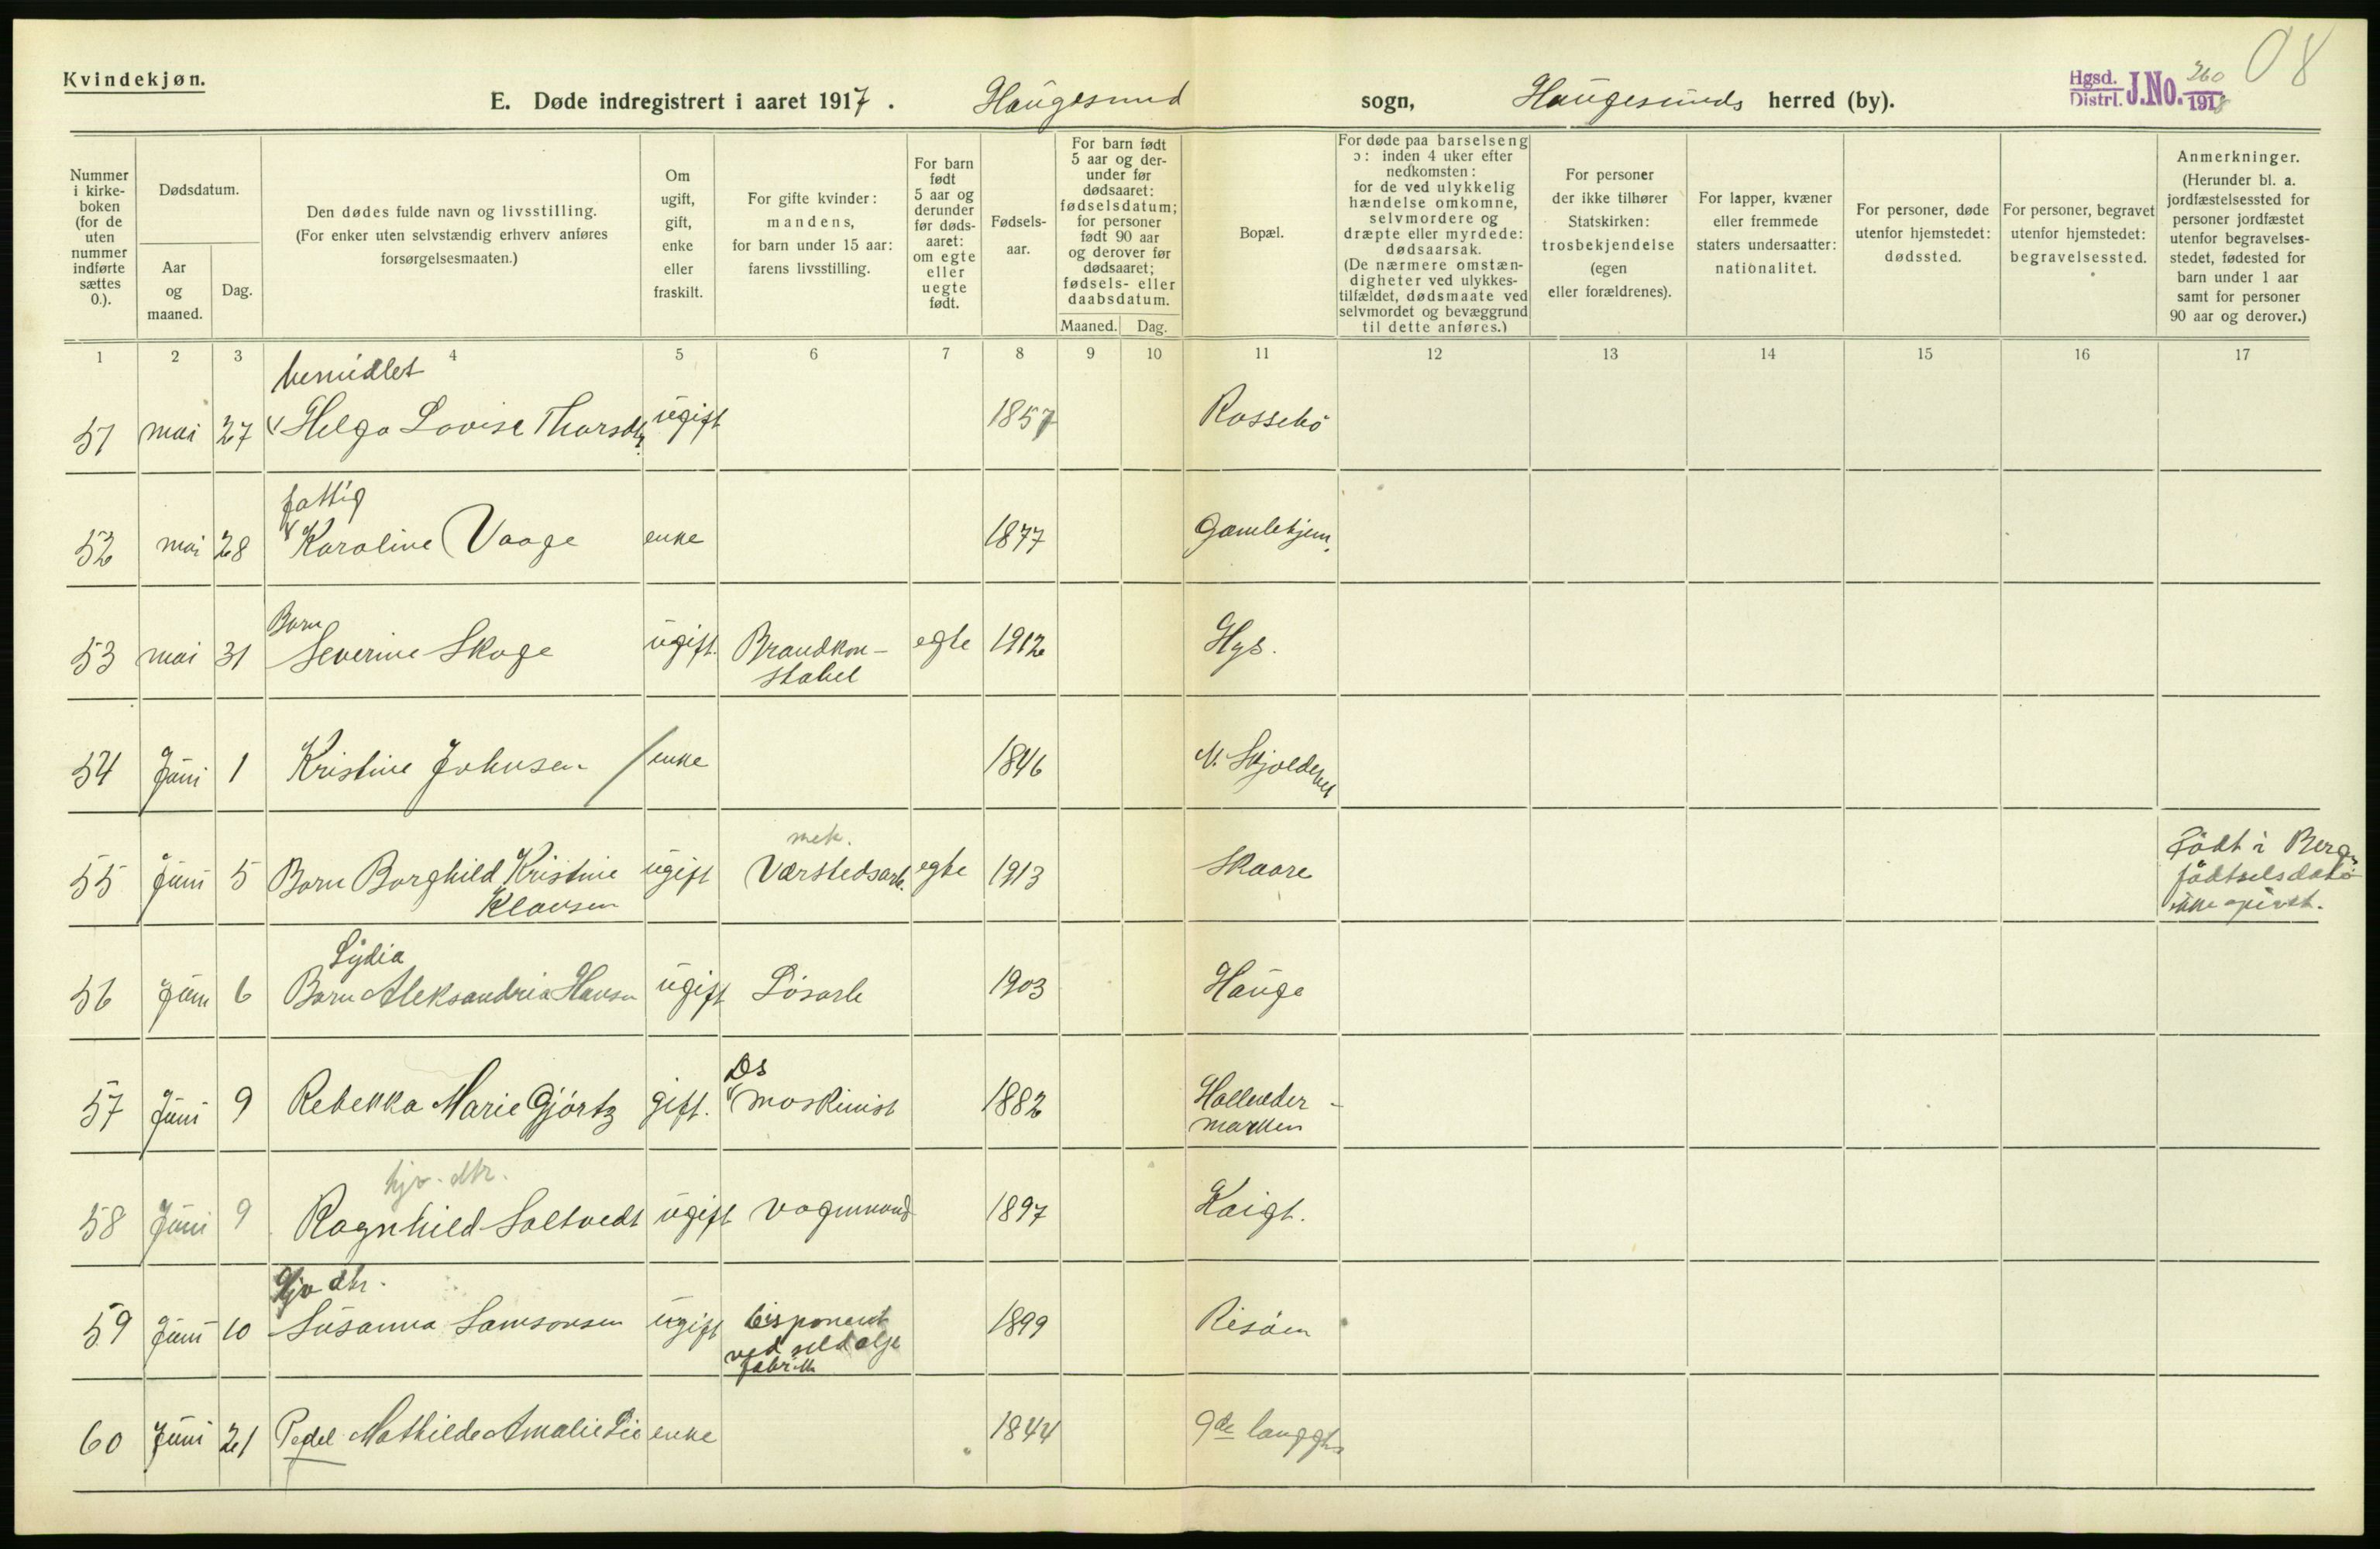 Kvindekjøn.
E. Døde indregistrert i aaret 1917. Haugesund sogn, Haugesunds herred (by).
Hgsd. Distrl. J.No. 260 1918
08
Nummer i kirkeboken (for de uten nummer indførte sættes 0.).
Dødsdatum.
Aar og maaned.
Dag.
Den dødes fulde navn og livsstilling.
(For enker uten selvstændig erhverv anføres forsørgelsesmaaten.)
Om ugift, gift, enke eller fraskilt.
For gifte kvinder: mandens, for barn under 15 aar: farens livsstilling.
For barn født 5 aar og derunder før dødsaaret: om egte eller uegte født.
Fødselsaar.
For barn født 5 aar og derunder før dødsaaret: fødselsdatum; for personer født 90 aar og derover før dødsaaret; fødsels- eller daabsdatum.
Maaned. Dag.
Bopæl.
For døde paa barselseng ɔ: inden 4 uker efter nedkomsten: for de ved ulykkelig hændelse omkomne, selvmordere og dræpte eller myrdede: dødsaarsak. (De nærmere omstændigheter ved ulykkestilfældet, dødsmaate ved selvmordet og bevæggrund til dette anføres.)
For personer der ikke tilhører Statskirken: trosbekjendelse (egen eller forældrenes).
For lapper, kvæner eller fremmede staters undersaatter: nationalitet.
For personer, døde utenfor hjemstedet: dødssted.
For personer, begravet utenfor hjemstedet: begravelsessted.
Anmerkninger. (Herunder bl. a. jordfæstelsessted for personer jordfæstet utenfor begravelsesstedet, fødested for barn under 1 aar samt for personer 90 aar og derover.)
1 2 3 4 5 6 7 8 9 10 11 12 13 14 15 16 17
bemidlet
51 mai 27 Helga Lovise Thorsdtr. ugift 1857 Rossebö
fattig
52 mai 28 Karoline Vaage enke 1877 Gamlehjem.
Barn
53 mai 31 Severine Skoge ugift. Brandkon- egte 1912 Hgs.
stabel
54 Juni 1 Kristine Johnsen / enke 1846 N. Skjoldehei
mek. Födt i Berg.
55 Juni 5 Barn Borghild Kristine ugift Værstedsarb. egte 1913 Skaare födtselsdato
Klausen ikke opivet.
Lydia
56 Juni 6 Barn Aleksandria Hansen ugift Lösarb 1903 Hauge
Ds
57 Juni 9 Rebekka Marie Gjörtz gift. maskinist 1882 Hollender-
marken
hjv. dtr.
58 Juni 9 Ragnhild Saltvedt ugift vognmand 1897 Kaigt.
Hjv dtr.
59 Juni 10 Susanna Samsonsen ugift Disponent 1899 Risöen
ved sildolje
fabrik
60 Juni 21 Pedel Mathilde Amalie Lie enke 1844 9de langgt.